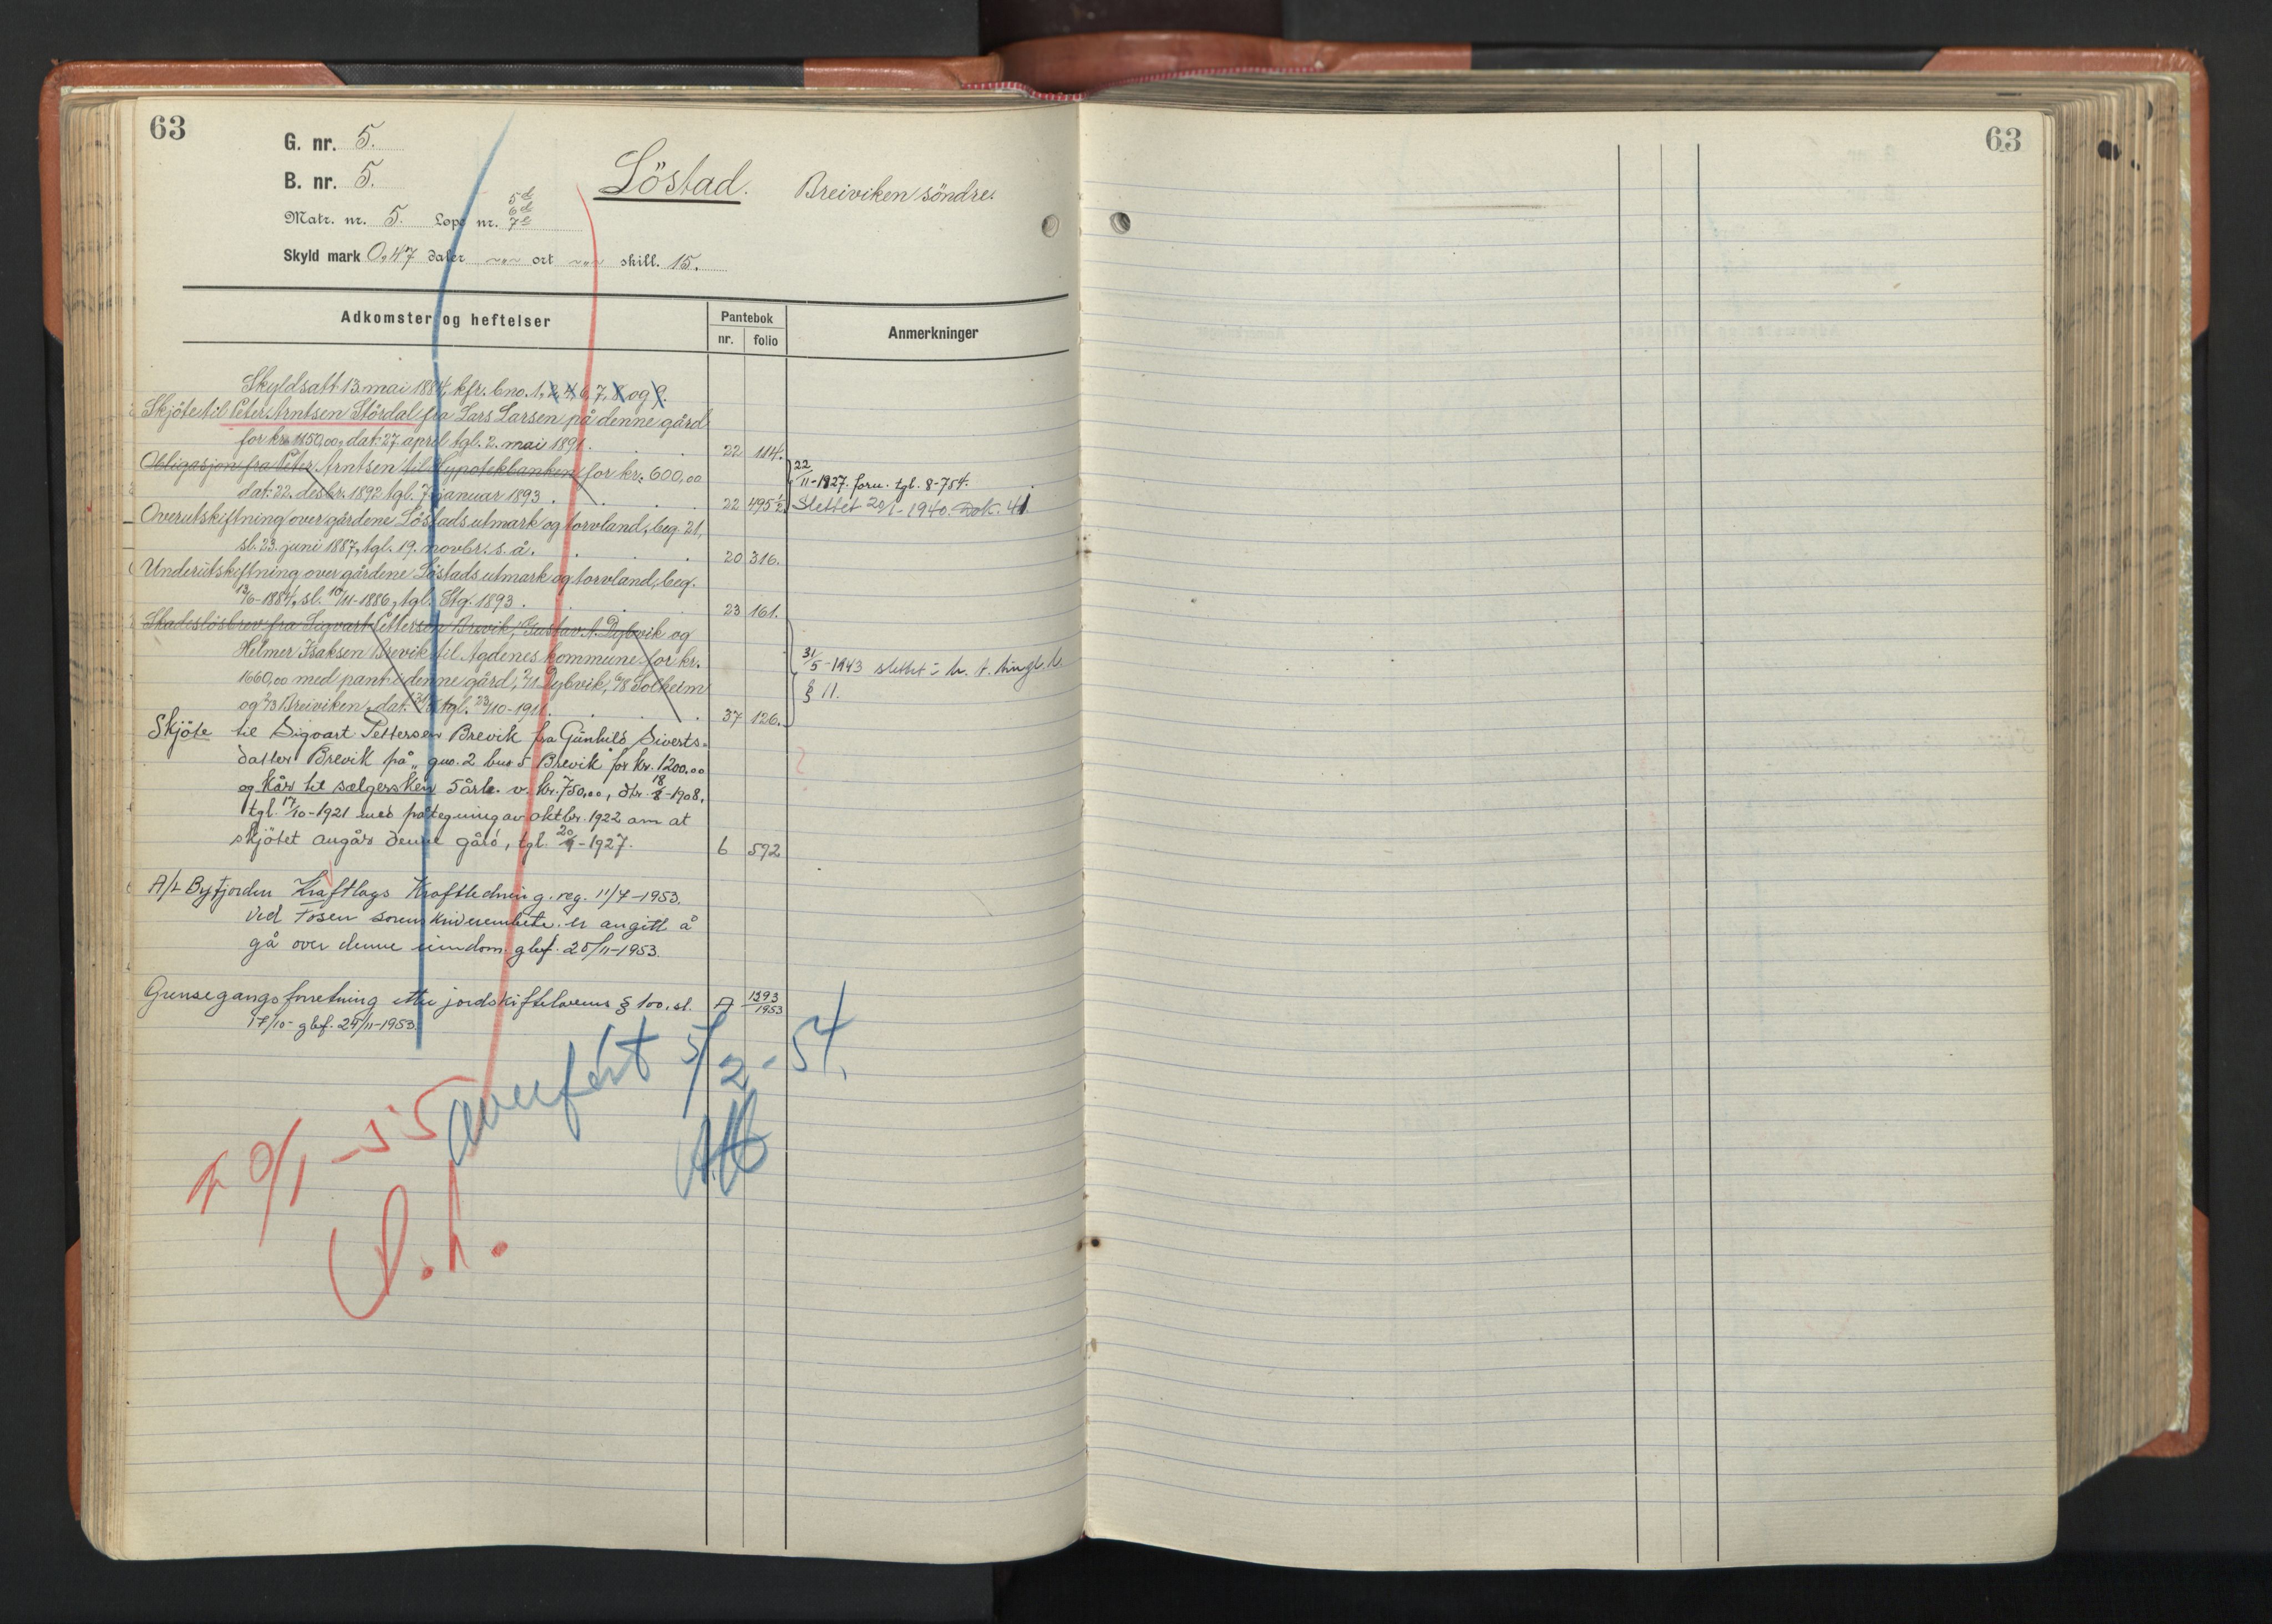 63
63
G. nr. 5.
B. nr. 5.
Löstad. Breiviken söndre.
5d
6d
Matr. nr. 5. Løpe nr. 7e
Skyld mark 0,47 daler ort skill. 15.
Adkomster og heftelser
Pantebok
nr. folio
Anmerkninger
Skyldsatt 13 mai 1884, kfr. bno. 1, 2, 4, 6, 7, 8 og 9.
Skjöte til Peter Arntsen Stördal fra Lars Larsen på denne gård
for kr. 1850,00, dat. 27 april tgl. 2. mai 1891. 22 114.
Obligasjon fra Peter Arntsen til Hypotekbanken for kr. 600,00
dat. 22. desbr. 1892 tgl. 7 januar 1893. 22 495½
22/11-1927. forn. tgl. 8-754.
Slettet 20/1-1940. Dok. 41.
Overutskiftning over gårdene Löstads utmark og torvland, beg. 21,
sl. 23. juni 1887, tgl. 19. novbr. s. å. 20 316.
Underutskiftning over gårdene Löstads utmark og torvland, beg.
13/6-1884, sl. 10/11-1886, tgl. Htg. 1893. 23 161.
Skadeslösbrev fra Sigvart Pettersen Brevik, Gustav A. Dybvik og
Helmer Isaksen Brevik til Agdenes kommune for kr.
1660,00 med pant i denne gård, 2/1 Dybvik, 6/8 Solheim
og 2/3 Breiviken, dat. tgl. 23/10-1911. 37 126.
31/5-1943 slettet i h. t. tingl. l.
§ 11.
Skjöte til Sigvart Pettersen Brevik fra Gunhild Siverts-
datter Brevik på „gno. 2 bno 5 Brevik" for kr. 1200,00
og kår til sælgersken 5 årl. v. kr. 750,00, dtr. 18/8-1908,
tgl. 17/10-1921 med påtegning av oktbr. 1922 om at
skjötet angår denne gård, tgl. 20/9-1927. 6 592
A/L Byfjorden Kraftlags Kraftledning. reg. 11/7-1953.
ved Fosen sorenskriverembete. er angitt å
gå over denne eiendom. gbf. 25/11-1953.
Grensegangsforretning etter jordskiftelovens § 100. sl. A 1393/1953
17/10- gbf. 24/11-1953.
overfört 5/2-54.
AH
20/1-55